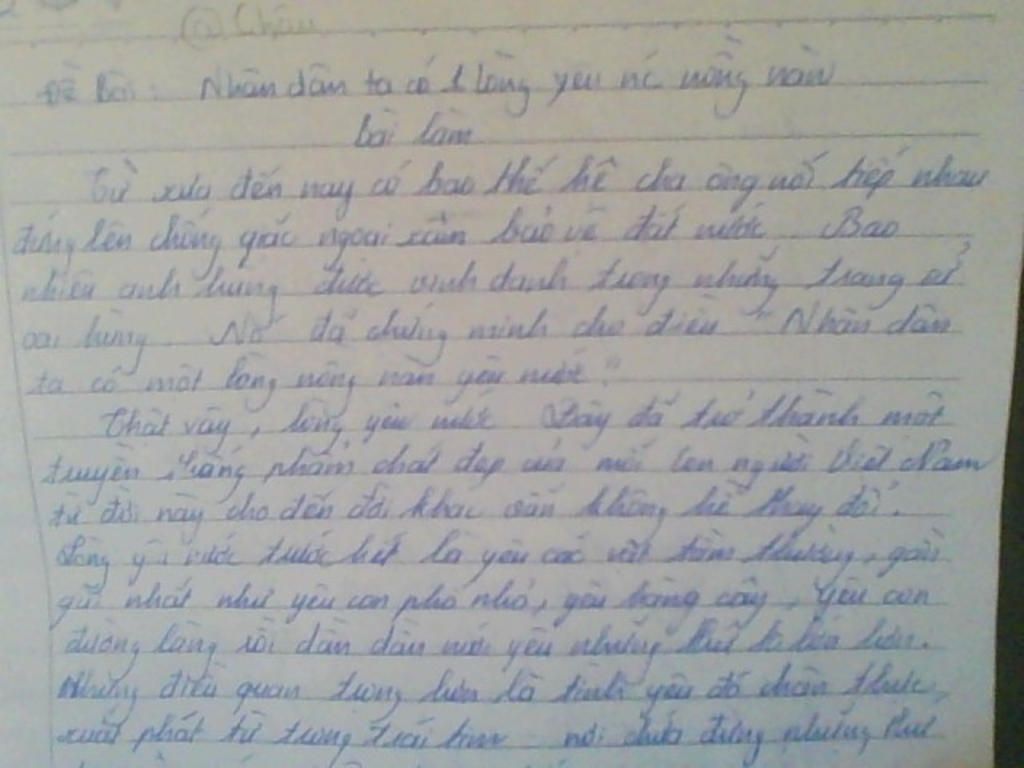 Châu
Đề bài: Nhân dân ta có 1 lòng yêu nc nồng nàn
bài làm
Từ xưa đến nay có bao thế hệ cha ông nối tiếp nhau
đứng lên chống giặc ngoại xâm bảo vệ đất nước. Bao
nhiêu anh hùng được vinh danh trong những trang sử
oai hùng. Nó đã chứng minh cho điều "Nhân dân
ta có một lòng nồng nàn yêu nước."
Thật vậy, lòng yêu nước. Đây đã trở thành một
truyền thống phẩm chất đẹp của mỗi con người Việt Nam
từ đời này cho đến đời khác vẫn không hề thay đổi.
Lòng yêu nước trước hết là yêu các vật tầm thường, gần
gũi nhất như yêu con phố nhỏ, yêu hàng cây, yêu con
đường làng rồi dần dần mới yêu những thứ to lớn hơn.
Nhưng điều quan trọng hơn là tình yêu đó chân thực,
xuất phát từ trong trái tim nơi chứa đựng những thứ